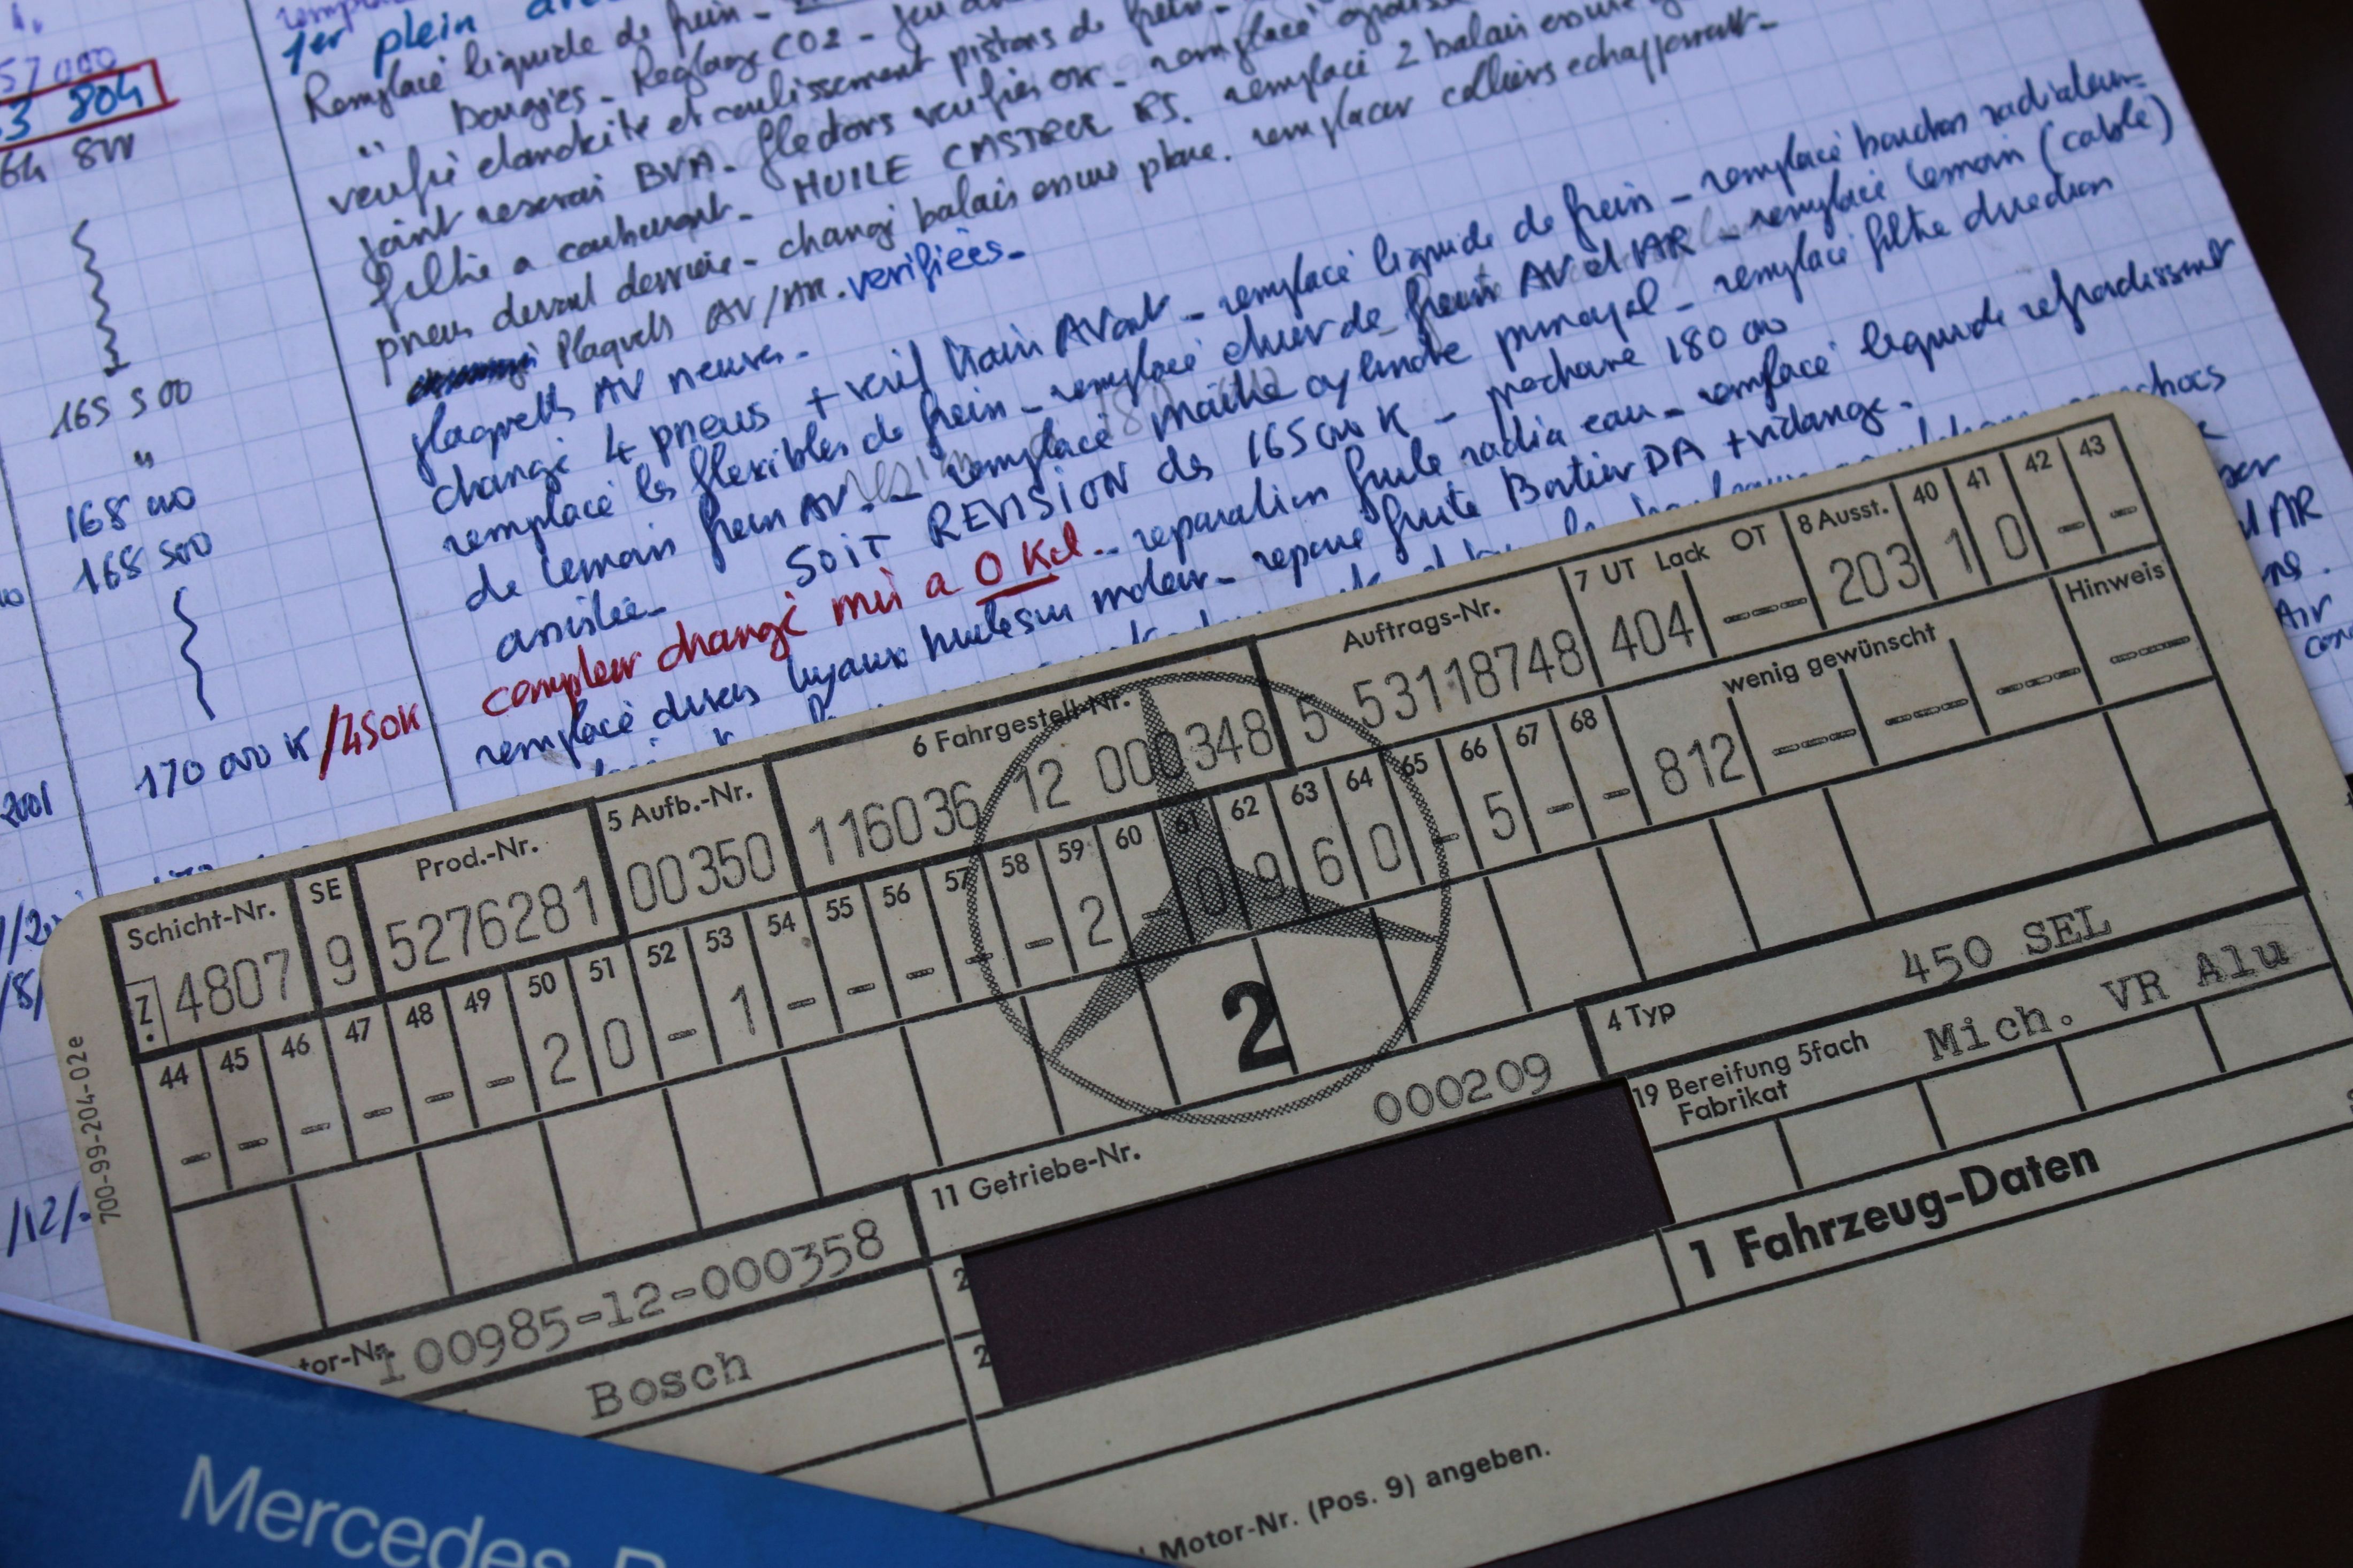 57 000
1er plein
3 804
Remplacé liquide de frein -
" bougies - Reglage CO2 - jeu
64 800
verifié etancheité et coulissement pistons de frein -
joint reservoi BVA - flectors verifiés OK - remplacé
filtre a carburant - HUILE CASTROL RS. remplacé 2 balais essuie
pneus devant derriere - changé balais essuie glace. remplacer colliers echappement -
Plaquets AV/AR. verifiées -
165 500
plaquetts AV neuves -
"
changé 4 pneus + verif train AVant - remplacé liquide de frein - remplacé bouchon radiateur -
168 000
remplacé les flexibles de frein - remplacé de frein AV et AR - remplacé temoin (cable)
168 500
de temoin frein AV - remplacé maitre cylindre principal - remplacé filtre direction
assistée - SOIT REVISION des 165 000 K - prochaine 180 000
compteur changé mis a 0 Kil. - reparation fuite radia eau - remplacé liquide refroidissant
170 000 K /450K
remplacé divers tuyaux huile sur moteur - repare fuite Boitier DA + vidange -
chocs
AR
Air
2001
/12/
Schicht-Nr.
SE
Prod.-Nr.
5 Aufb.-Nr.
6 Fahrgestell-Nr.
Auftrags-Nr.
7 UT Lack OT
8 Ausst.
40 41 42 43
Z. 4807 9 5276281 00350 116036 12 000348 5 53118748 404 --- 203 1 0 - -
44 45 46 47 48 49 50 51 52 53 54 55 56 57 58 59 60 61 62 63 64 65 66 67 68 wenig gewünscht Hinweis
- - - - - - 2 0 - 1 - - - - - 2 - 0 9 6 0 - 5 - - 812 --- --- --- ---
2
tor-Nr. 100985-12-000358
11 Getriebe-Nr. 000209
4 Typ 450 SEL
Bosch
2
2
19 Bereifung 5fach
Fabrikat
Mich. VR Alu
1 Fahrzeug-Daten
Motor-Nr. (Pos. 9) angeben.
700-99-204-02e
Mercedes-B